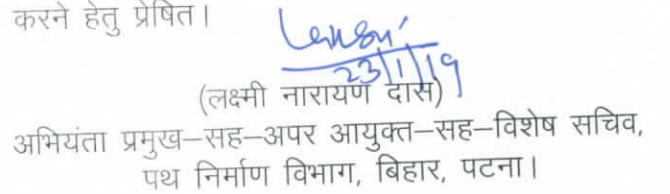 करने हेतु प्रेषित।
23/1/19
(लक्ष्मी नारायण दास)
अभियंता प्रमुख–सह–अपर आयुक्त–सह–विशेष सचिव,
पथ निर्माण विभाग, बिहार, पटना।